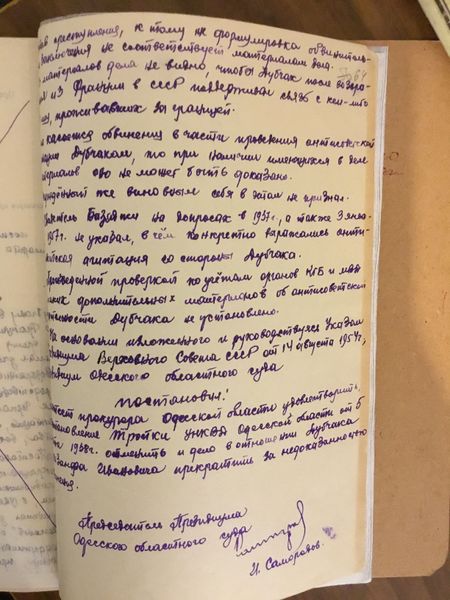 ав преступления, к тому же формулировка обвинитель-
заключения не соответствует материалам дела.
материалов дела не видно, чтобы Дубчак после возвра-
из Франции в СССР поддерживал связь с кем-либо
проживавших за границей.
касается обвинения в части проведения антисоветской
Дубчаком, то при наличии имеющихся в деле
материалов оно не может быть доказано.
же виновным себя в этом не признал.
на допросах в 1937г., а также 3 янва-
1957г. не указал, в чём конкретно выражались анти-
ская агитация со стороны Дубчака.
Произведенной проверкой по учётам органов КГБ и
дополнительных материалов об антисоветской
Дубчака не установлено.
На основании изложенного и руководствуясь Указом
Президиума Верховного Совета СССР от 14 августа 1954г,
президиум Одесского областного суда
постановил:
прокурора Одесской области удовлетворить,
постановление Тройки УНКВД Одесской области от 5
1938г. отменить и дело в отношении Дубчака
Ивановича прекратить за недоказанностью
Председатель Президиума
Одесского областного суда
И. Самородов.